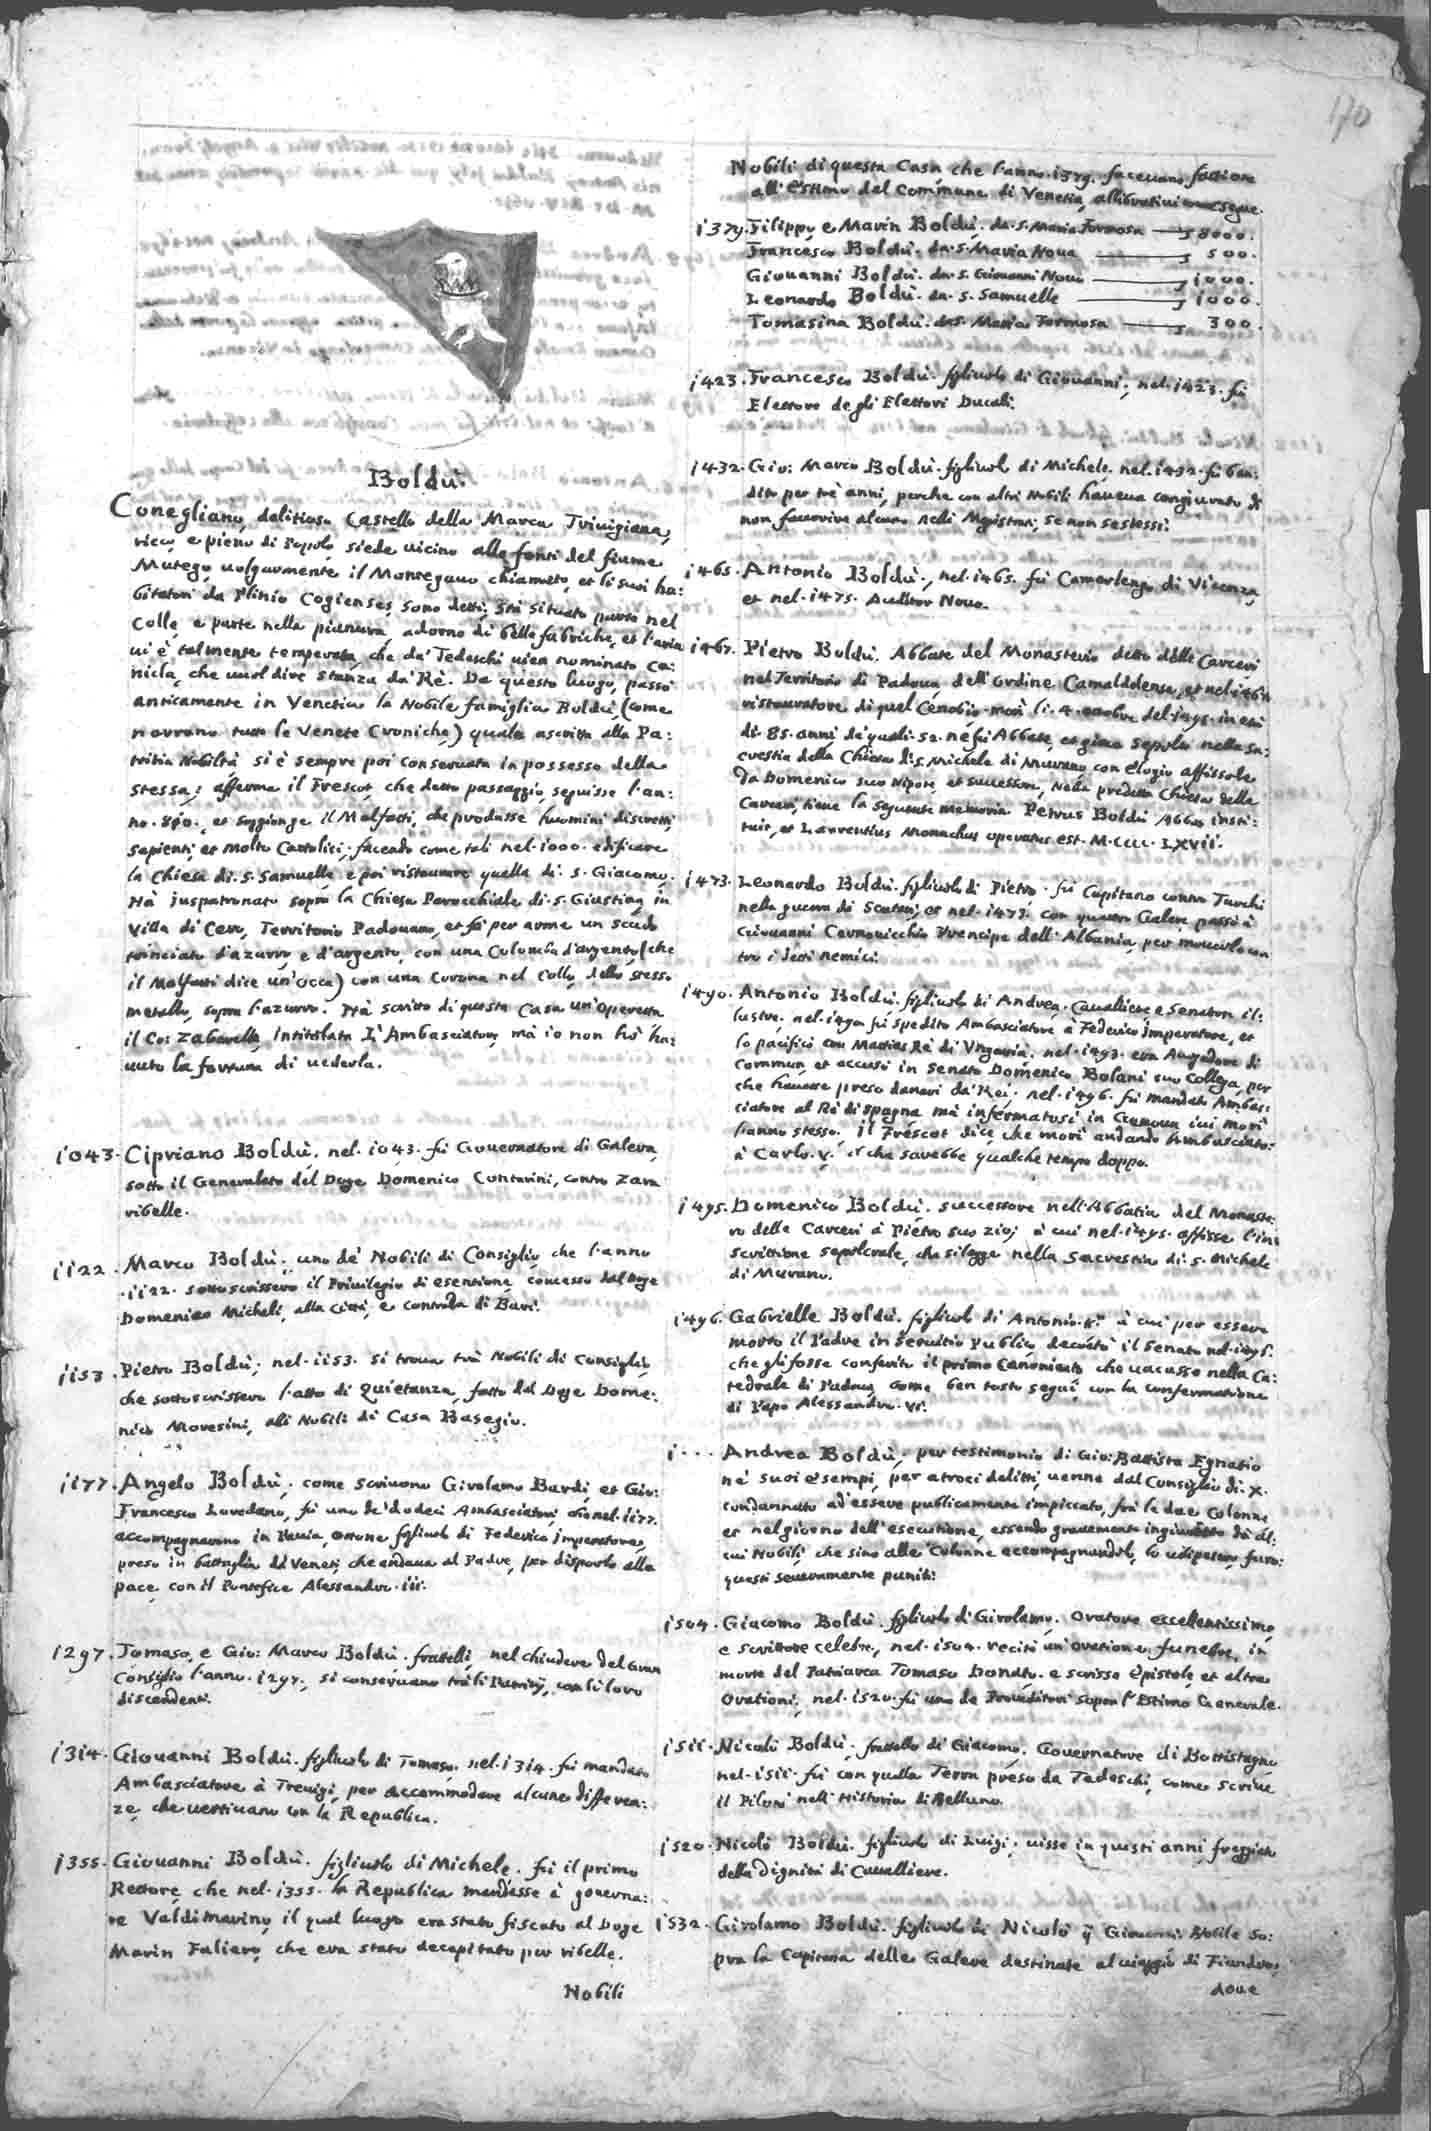 170
Boldù.
Conegliano, delitioso Castello della Marca Trivigiana,
ricco, e pieno di Popolo siede vicino alle fonti del fiume
Mutego, volgarmente il Montegano chiamato, et li suoi ha:
bitatori da Plinio Cogienses sono detti; stà situato parte nel
Colle, e parte nella pianura adorno di belle fabriche, et l'aria
ui è talmente temperata, che da' Tedeschi uien nominato Ca:
nicla, che uuol dire stanza da Rè. Da questo luogo, passò
anticamente in Venetia la Nobile famiglia Boldù, (come
narrano tutte le Venete Croniche) quale ascritta alla Pa:
tritia Nobiltà si è sempre poi conseruata in possesso della
stessa; afferma il Frescot, che detto passaggio, seguisse l'an:
no. 810. et soggionge il Malfatti, che produsse huomini discretti,
sapienti, et molto Cattolici, facendo come tali nel. i000. edificare
la Chiesa di. s. Samuelle e poi ristaurare quella di. s. Giacomo.
Hà juspatronato sopra la Chiesa Parocchiale di. s. Giustina in
Villa di Cero, Territorio Padouano, et fà per arme un scudo
trinciato d'azurro, e d'argento, con una Colomba d'argento, (che
il Malfatti dice un'occa) con una Corona nel Collo, dello stesso
metallo, sopra l'azurro. Hà scritto di questa Casa un'operetta
il Co: Zabarella, intitolata L'Ambasciator, mà io non hò ha:
uuto la fortuna di uederla.
i043. Cipriano Boldù. nel. i043. fù Gouernatore di Galera,
sotto il Generalato del Doge Domenico Contarini, contro Zara
ribelle.
ii22. Marco Boldù. uno de' Nobili di Consiglio, che l'anno
.ii22. sottoscrissero il Priuilegio di esentione, concesso dal Doge
Domenico Micheli, alla Città, e contrada di Bari.
ii53. Pietro Boldù, nel. ii53. si troua trà Nobili di Consiglio,
che sottoscrissero l'atto di Quietanza, fatto dal Doge Dome:
nico Moresini, alli Nobili di Casa Basegio.
ii77. Angelo Boldù. come scriuono Girolamo Bardi et Gio:
Francesco Loredano, fù uno de' dodeci Ambasciatori, che nel. ii77.
accompagnarono in Pauia, Ottone figliuolo di Federico Imperatore,
preso in battaglia da Veneti, che andaua al Padre, per disporlo alla
pace, con il Pontefice Alessandro. iii.
i297. Tomaso, e Gio: Marco Boldù. fratelli, nel chiudere del Gran
Consiglio l'anno. i297. si conseruano trà li Patritij, con li loro
discendenti.
i3i4. Giouanni Boldù. figliuolo di Tomaso. nel. i3i4. fù mandato
Ambasciatore à Treuigi, per accommodare alcune differen:
ze, che uertiuano con la Republica.
i355. Giouanni Boldù. figliuolo di Michele. fù il primo
Rettore, che nel. i355. la Republica mandasse à gouerna:
re Valdimarino, il qual luogo era stato fiscato al Doge
Marin Faliero, che era stato decapitato per ribelle.
Nobili
Nobili di questa Casa che l'anno. i379. faceuano fattione
all'Estimo del Commune di Venetia, allibrati segue.
i379. Filippo e Marin Boldù. da. s. Maria Formosa 8000.
Francesco Boldù. da. s. Maria Noua 500.
Giouanni Boldù. da. s. Giouanni Nouo i000.
Leonardo Boldù. da. s. Samuelle i000.
Tomasina Boldù. da s. Maria Formosa 300.
i423. Francesco Boldù. figliuolo di Giouanni, nel. i423. fù
Elettore degli Elettori Ducali.
i432. Gio: Marco Boldù. figliuolo di Michele, nel. i432. fù ban:
dito per trè anni, perche con altri Nobili haueua congiurato di
non fauorire alcuno nelli Magistrati, se non se stessi.
i465. Antonio Boldù., nel. i465. fù Camerlengo di Vicenza,
et nel. i475. Auditor Nouo.
i467. Pietro Boldù. Abbate del Monasterio detto delle Carceri,
nel Territorio di Padoua, dell'ordine Camaldolense, et nel. i467
ristauratore di quel Cenobio. morì li. 4. ottobre del. i495. in età
di. 85. anni de' quali. 52. ne fù Abbate, et giace sepolto nella Sa:
crestia della Chiesa di. s. Michele di Murano con elogio affissole
da Domenico suo Nipote, et successore, nella predetta Chiesa delle
Carceri, tiene la seguente memoria Petrus Boldù Abbas insti:
tuit, et Laurentius Monachus operatus est. M. CCCC. LXVII.
i473. Leonardo Boldù. figliuolo di Pietro. fù Capitano contro Turchi
nella guerra di Scutari, et nel. i473. con quattro Galere, passò à
Giouanni Cernouicchio Prencipe dell'Albania, per mouerlo con
tro i detti nemici.
i490. Antonio Boldù. figliuolo di Andrea. Caualliere e Senatore il:
lustre, nel. i490 fù spedito Ambasciatore à Federico Imperatore, et
lo pacificò con Mattias Rè di Vngaria. nel. i493. era Auogadore di
Commun, et accusò in Senato Domenico Bolani suo Collega, per
che hauesse preso danari da' Rei. nel. i496. fù mandato Ambas:
ciatore al Rè di Spagna mà infermatosi in Genoua iui morì
l'anno stesso. il Frescot dice, che morì andando Ambasciator
à Carlo. V. il che sarebbe qualche tempo doppo.
i495. Domenico Boldù. successore nell'Abbatia del Monaste:
ro delle Carceri à Pietro suo zio; à cui nel. i495. affisse l'in:
scrittione sepolcrale, che si legge nella Sacrestia di. s. Michele
di Murano.
i496. Gabrielle Boldù. figliuolo di Antonio. K.r à cui per essere
morto il Padre in seruitio Publico, decretò il Senato nel. i495.
che gli fosse conferito il primo Canonicato, che uacasse nella Ca:
tedrale di Padoua, come ben tosto seguì, con la confermatione
di Papa Alessandro. VI.
i... Andrea Boldù, per testimonio di Gio: Battista Egnatio
ne' suoi esempi, per atroci delitti, uenne dal Consiglio di. X.
condannato ad essere publicamente impiccato, frà le due Colonne
et nel giorno dell'esecutione, essendo grauemente ingiuriato da al:
cui Nobili, che sino alle Colonne accompagnandolo, lo uilipesero, furo:
questi seueramente puniti.
i504. Giacomo Boldù. figliuolo di Girolamo. Oratore eccellentissimo
e scrittore celebre, nel. i504. recitò un'oratione funebre, in
morte del Patriarca Tomaso Donato. e scrisse Epistole, et altre
Orationi, nel. i520. fù uno de Proueditori sopra l'Estimo Generale.
i5ii. Nicolò Boldù. fratello di Giacomo. Gouernatore di Bottistagno
nel. i5ii. fù con quella Terra preso da Tedeschi, come scriue
il Piloni nell'Historia di Belluno.
i520. Nicolò Boldù. figliuolo di Luigi. uisse in questi anni, freggiato
della dignità di Caualliere.
i532. Girolamo Boldù. figliuolo di Nicolò q. Giouanni. Nobile so:
pra la Capitana delle Galere destinate al uiaggio di Fiandra,
doue